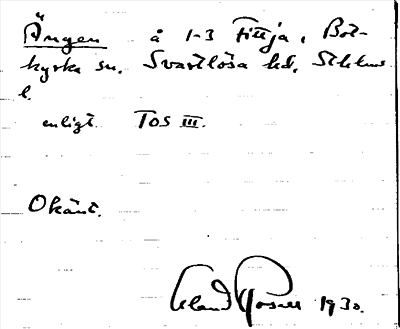 Ängen å 1-3 Fittja, Bot-
kyrka sn. Svartlösa hd. Sthlms
l.
enligt TOS III.
Okänt.
Erland Rosell 1930.